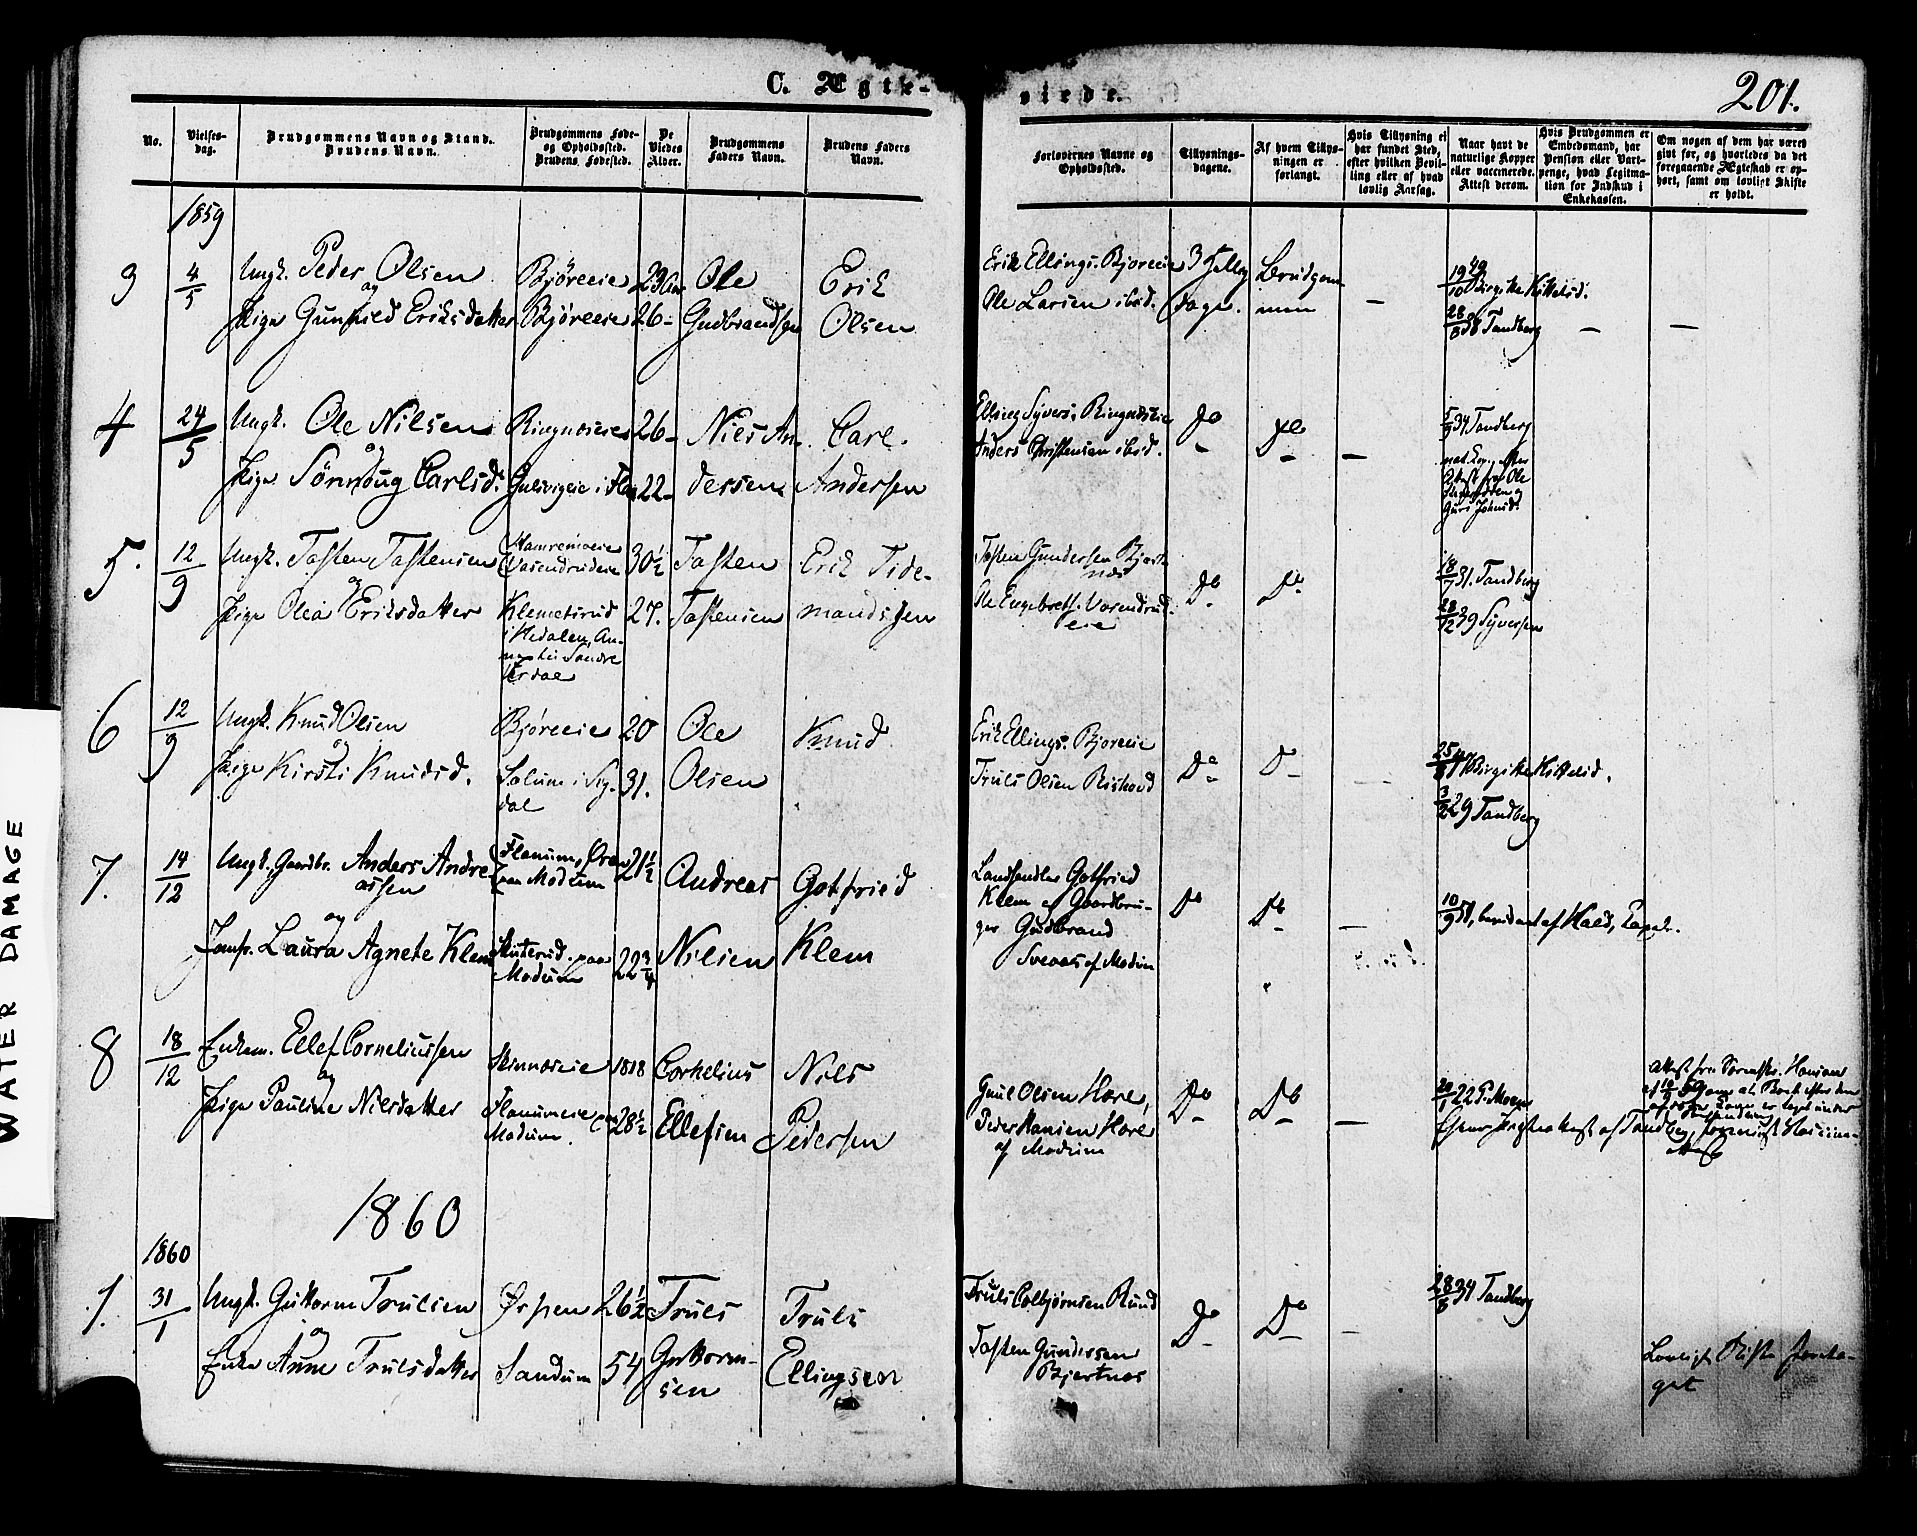 C. Ægte-
viede.
201.
No.
Vielses-
dag.
Brudgommens Navn og Stand.
Brudens Navn.
Brudgommens Føde-
og Opholdssted.
Brudens Fødested.
De
Viedes
Alder.
Brudgommens
Faders Navn.
Brudens Faders
Navn.
Forlovernes Navne og
Opholdssted.
Tillysnings-
dagene.
Af hvem Tillys-
ningen er
forlangt.
Hvis Tillysning ei
har fundet Sted,
efter hvilken Bevil-
ling eller af hvad
lovlig Aarsag.
Naar havt de
naturlige Kopper
eller vaccinerede.
Attest derom.
Hvis Brudgommen er
Embedsmand, har
Pension eller Vart-
penge, hvad Legitima-
tion for Indskud i
Enkekassen.
Om nogen af dem har været
gift før, og hvorledes da det
foregaaende Ægteskab er op-
hørt, samt om lovligt Skifte
er holdt.
1859
3
4/5
Ungk. Peder Olsen
og
Pige Gunhild Eriksdatter
Bjøreeie
Bjøreeie
23
26
Ole
Gudbrandsen
Erik
Olsen
Erik Ellings. Bjoreeie
Ole Larsen ibid.
3 Hellig
dage.
Brudgom-
men
19/10 49 Birgitte Kittelsd.
28/8 38 Tandberg
4
24/5
Ungk. Ole Nilsen
og
Pige Sönnoug Carlsd.
Ringnæseie
Gulsvigeie i Flaa
26
22
Niels An-
dersen
Carl
Andersen
Elling Syvers. Ringnæseie
Anders Christensen ibid.
Do
Do
5/9 34 Tandberg
5.
12/9
Ungk. Tosten Tostensen
og
Pige Olea Eriksdatter
Hamremoeie
Vasendrudeie
Klemetsrud
i Hedalen, An-
nex til Søndre
Urdal
30½
27.
Tosten
Tostensen
Erik Tide-
mandssen
Tosten Gundersen Bjert-
næs
Ole Engebrets. Vasendrud-
eie
Do
Do
18/7 31. Tandberg
28/12 39 Syversen
6
12/9
Ungk. Knud Olsen
og
Pige Kirsti Knudsd.
Bjøreeie
Solum i Sig-
dal
20
31.
Ole
Olsen
Knud
Erik Ellings. Bjoreeie
Truls Olsen Rishovd
Do
Do
25/8 47 Birgitte Kittelsd.
3/2 29 Tandberg
7.
14/12
Ungk. Gaardbr. Anders Andre-
assen
og
Jomfr. Laura Agnete Klem
Flanum, Øren
paa Modum
Skuterud paa
Modum
21½
22¾
Andreas
Nilsen
Gotfried
Klem
Landhandler Gotfried
Klem og Gaardbru-
ger Gudbrand
Sveaas af Modum
Do
Do
10/9
8
18/12
Enkem. Ellef Corneliussen
og
Pige Pauline Nilsdatter
Skinnæseie
Flanumeie paa
Modum.
1818
28½
Cornelius
Ellefsen
Nils
Pedersen
Guul Olsen Hore,
Peder Hansen Hore
af Modum
Do
Do
20/1 22 P. Moem
Attest fra Sorenskr. Hansen
1860
1860
1.
31/1
Ungk. Guttorm Trulsen
og
Enke Anne Trulsdatter
Ørpen
Sandum
26½
54
Truls
Guttorm-
sen
Truls
Ellingsen
Truls Colbjørnsen Rund
Tosten Gundersen
Bjertnæs
Do
Do
28/8 34 Tandberg
Lovligt Skifte foreta-
get
WATER DAMAGE